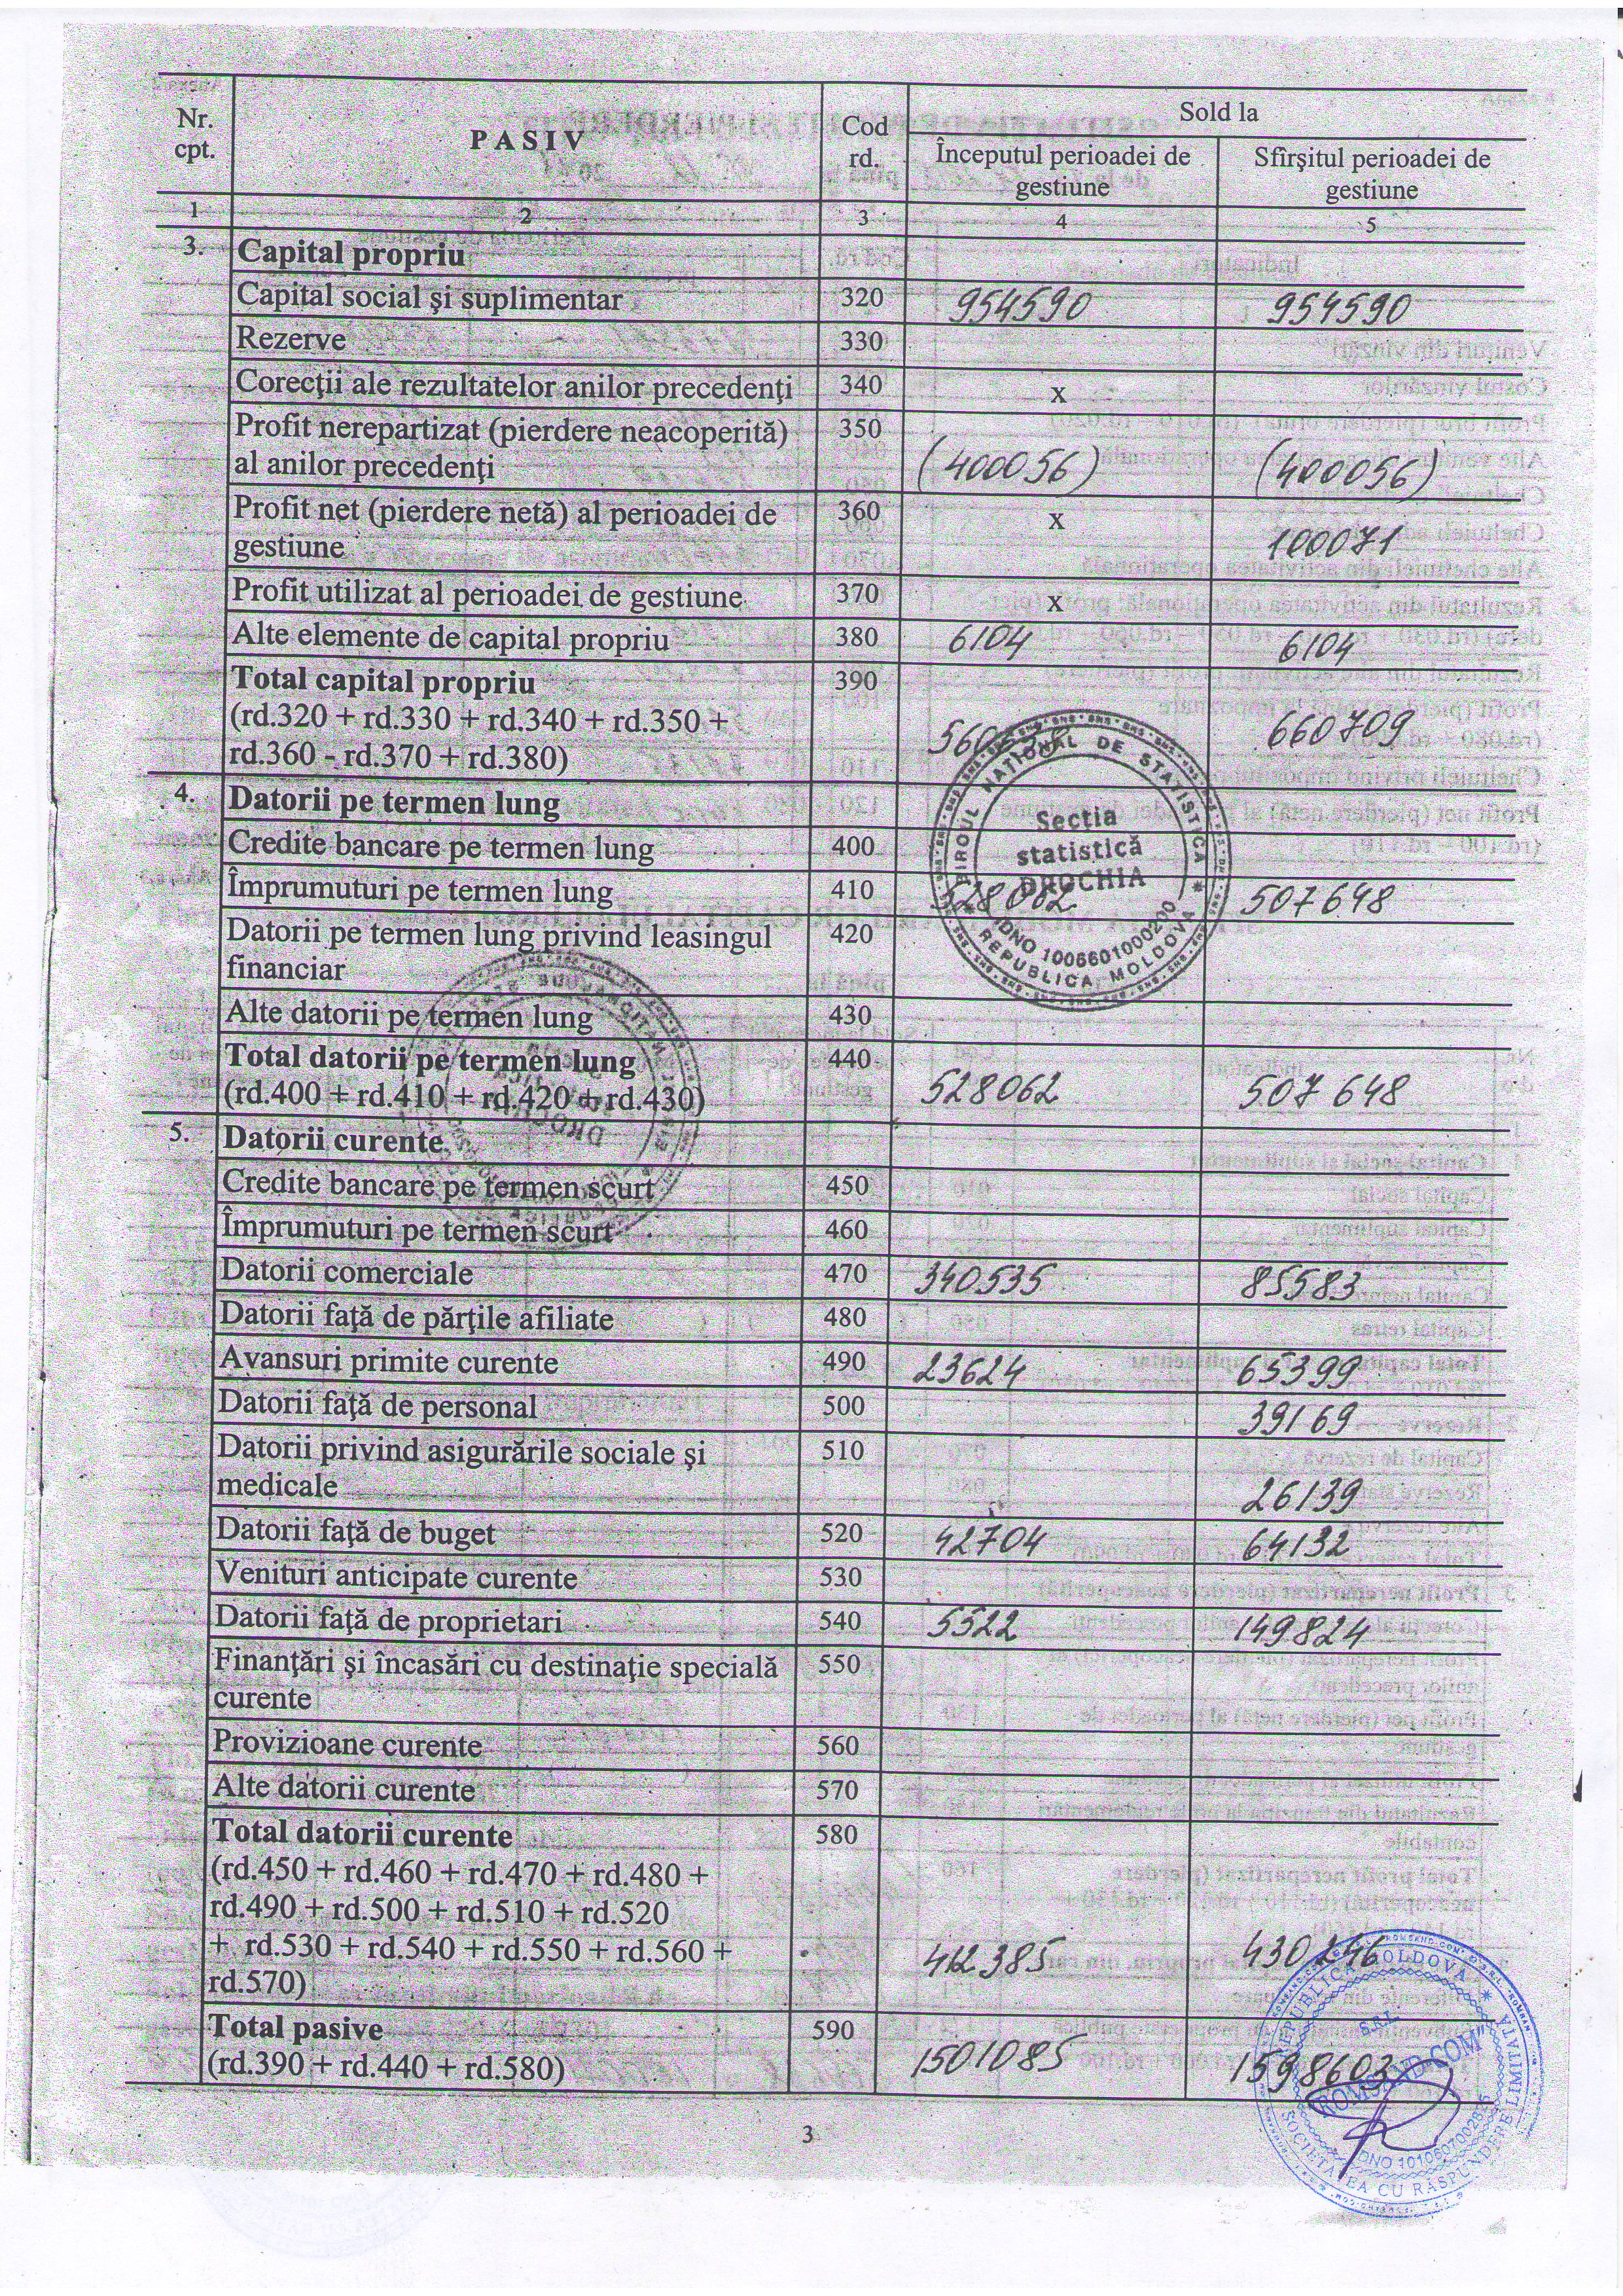 Nr. cpt.
P A S I V
Cod rd.
Sold la
Începutul perioadei de gestiune
Sfîrşitul perioadei de gestiune
1 2 3 4 5
3. Capital propriu
Capital social şi suplimentar 320 954590 954590
Rezerve 330
Corecţii ale rezultatelor anilor precedenţi 340 x
Profit nerepartizat (pierdere neacoperită) 350
al anilor precedenţi (400056) (400056)
Profit net (pierdere netă) al perioadei de 360 x
gestiune 100071
Profit utilizat al perioadei de gestiune 370 x
Alte elemente de capital propriu 380 6104 6104
Total capital propriu 390
(rd.320 + rd.330 + rd.340 + rd.350 + 660709
rd.360 - rd.370 + rd.380)
4. Datorii pe termen lung
Credite bancare pe termen lung 400
Împrumuturi pe termen lung 410 528062 507648
Datorii pe termen lung privind leasingul 420
financiar
Alte datorii pe termen lung 430
Total datorii pe termen lung 440
(rd.400 + rd.410 + rd.420 + rd.430) 528062 507 648
5. Datorii curente
Credite bancare pe termen scurt 450
Împrumuturi pe termen scurt 460
Datorii comerciale 470 340535 85583
Datorii faţă de părţile afiliate 480
Avansuri primite curente 490 23624 65399
Datorii faţă de personal 500 39169
Datorii privind asigurările sociale şi 510
medicale 26139
Datorii faţă de buget 520 42704 64132
Venituri anticipate curente 530
Datorii faţă de proprietari 540 5522 149824
Finanţări şi încasări cu destinaţie specială 550
curente
Provizioane curente 560
Alte datorii curente 570
Total datorii curente 580
(rd.450 + rd.460 + rd.470 + rd.480 +
rd.490 + rd.500 + rd.510 + rd.520
+ rd.530 + rd.540 + rd.550 + rd.560 + 412385 430246
rd.570)
Total pasive 590
(rd.390 + rd.440 + rd.580) 1501085 1598603
3
BIROUL NAŢIONAL DE STATISTICA
Sectia
statistică
DROCHIA
IDNO 1006601000200
REPUBLICA MOLDOVA
REPUBLICA MOLDOVA
S.R.L.
"ROMSAND.COM"
SOCIETATEA CU RĂSPUNDERE LIMITATĂ